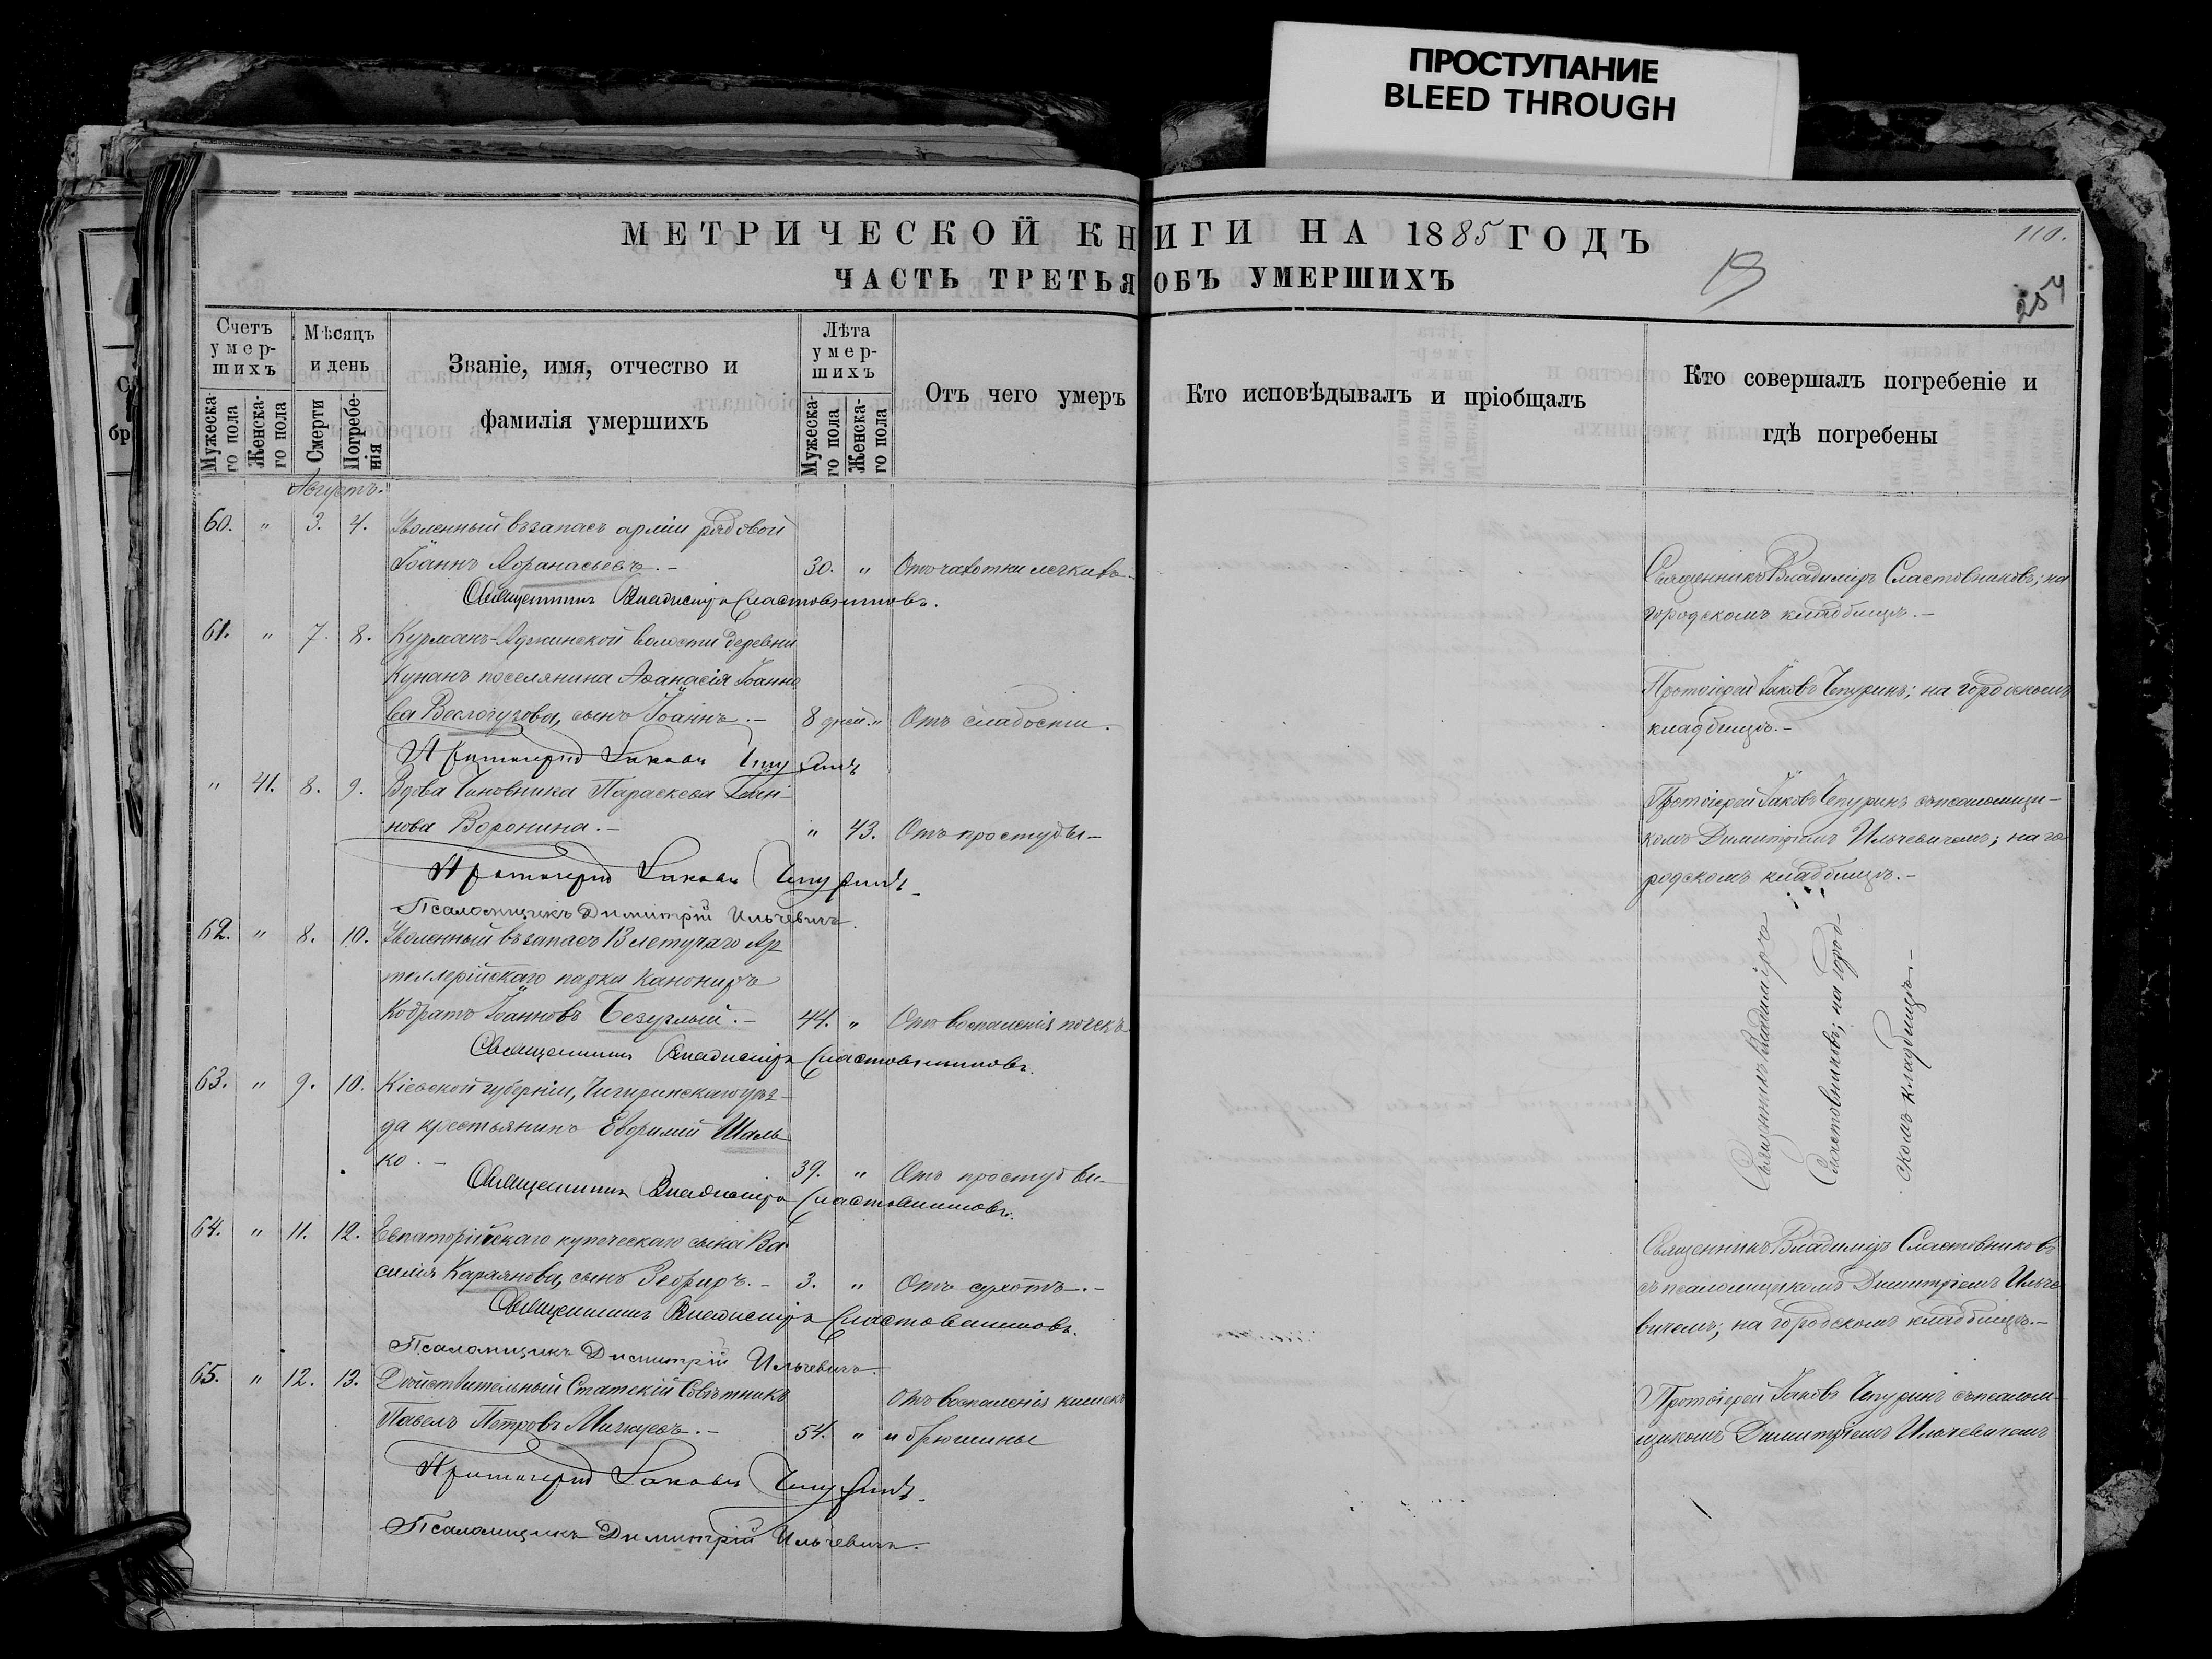 ПРОСТУПАНИЕ
BLEED THROUGH
МЕТРИЧЕСКОЙ КНИГИ НА 1885 ГОДЪ
110.
ЧАСТЬ ТРЕТЬЯ ОБЪ УМЕРШИХЪ
254
Счетъ умер-шихъ
Мужеска-го пола
Женска-го пола
Мѣсяцъ и день
Смерти
Погребе-нія
Званіе, имя, отчество и
фамилія умершихъ
Лѣта умер-шихъ
Мужеска-го пола
Женска-го пола
Отъ чего умеръ
Кто исповѣдывалъ и пріобщалъ
Кто совершалъ погребеніе и
гдѣ погребены
Августъ.
60. " 3. 4. Уволенный въ запасъ арміи рядовой
Іоаннъ Аѳанасьевъ. - 30. " Отъ чахотки легкихъ.
Священникъ Владиміръ Сластовниковъ; на
городскомъ кладбищѣ. -
Священникъ Владиміръ Сластовниковъ.
61. " 7. 8. Курманъ-Аджинской волости деревни
Кунанъ поселянина Аѳанасія Іоанно
ва сынъ Іоаннъ. - 8 дней. " Отъ слабости.
Протоіерей Іаковъ Чепуринъ; на городскомъ
кладбищѣ. -
Протоіерей Іаковъ Чепуринъ
" 41. 8. 9. Вдова Чиновника Параскева
нова Воронина. - " 43. Отъ простуды -
Протоіерей Іаковъ Чепуринъ съ псаломщи-
комъ Димитріемъ Ильчевичемъ; на го
родскомъ кладбищѣ. -
Протоіерей Іаковъ Чепуринъ
Псаломщикъ Димитрій Ильчевичъ.
62. " 8. 10. Уволенный въ запасъ 13 летучаго Ар
тиллерійскаго парка Канониръ
Кодратъ Іоанновъ Безуглый. - 44. " Отъ воспаленія почекъ
Священникъ Владиміръ
Сластовниковъ; на город
скомъ кладбищѣ. -
Священникъ Владиміръ Сластовниковъ.
63. " 9. 10. Кіевской губерніи, Чигиринскаго уѣз-
да крестьянинъ Евфимій Шаль
ко. - 39. " Отъ простуды -
Священникъ Владиміръ Сластовниковъ.
64. " 11. 12. Евпаторійскаго купеческаго сына Ва
силія Караянова, сынъ - 3. " Отъ сухотъ. -
Священникъ Владиміръ Сластовниковъ
съ псаломщикомъ Димитріемъ Ильче
вичемъ; на городскомъ кладбищѣ. -
Священникъ Владиміръ Сластовниковъ.
Псаломщикъ Димитрій Ильчевичъ.
65. " 12. 13. Дѣйствительный Статскій Совѣтникъ
Павелъ Петровъ - 54. " Отъ воспаленія кишекъ
и брюшины
Протоіерей Іаковъ Чепуринъ съ псалом-
щикомъ Димитріемъ Ильчевичемъ
Протоіерей Іаковъ Чепуринъ.
Псаломщикъ Димитрій Ильчевичъ.